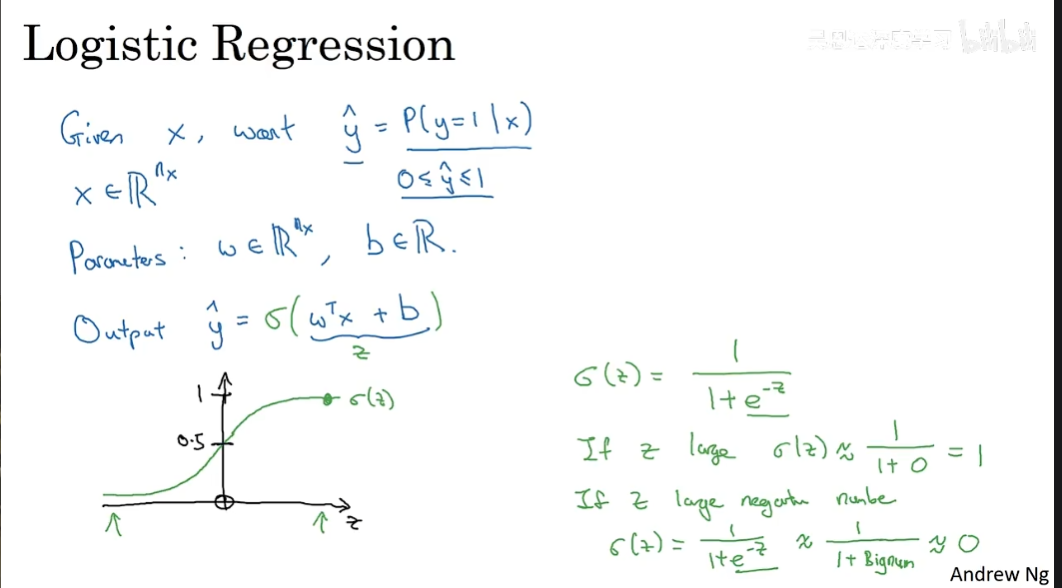 Logistic Regression
Given x, want ŷ = P(y=1|x)
x ∈ ℝⁿˣ
0 ≤ ŷ ≤ 1
Parameters: w ∈ ℝⁿˣ, b ∈ ℝ.
Output ŷ = σ(wᵀx + b)
z
1
σ(z)
0.5
z
σ(z) = 1 / (1 + e⁻ᶻ)
If z large σ(z) ≈ 1 / (1 + 0) = 1
If z large negative number
σ(z) = 1 / (1 + e⁻ᶻ) ≈ 1 / (1 + Bignum) ≈ 0
Andrew Ng